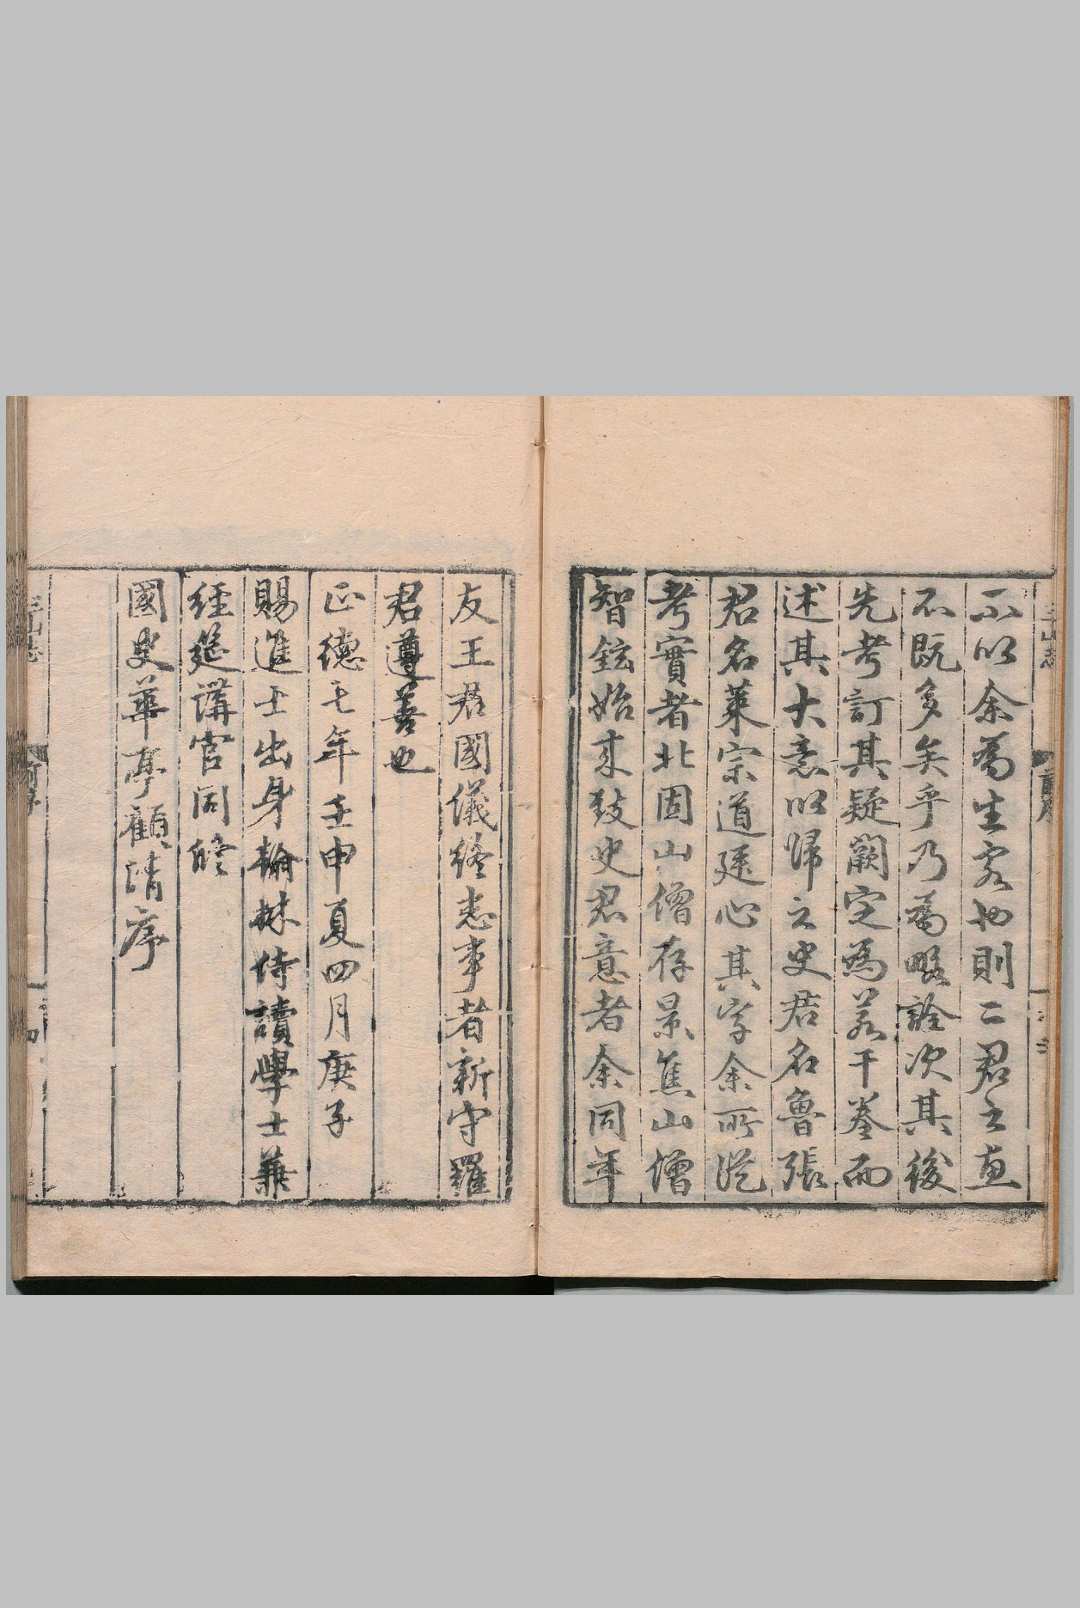 不以余為生客也則二君之惠
不既多矣乎乃為略詮次其後
先考訂其疑闕定為若干卷而
述其大意以歸之史君名魯張
君名萊宗道廷心其字余所從
考實者北固山僧存景焦山僧
智鉉始來致史君意者余同年
友王君國儀終恚事者新守羅
君遵善也
正德七年壬申夏四月庚子
賜進士出身翰林侍讀學士兼
經筵講官同脩
國史華亭顧清序
三山志
顧序